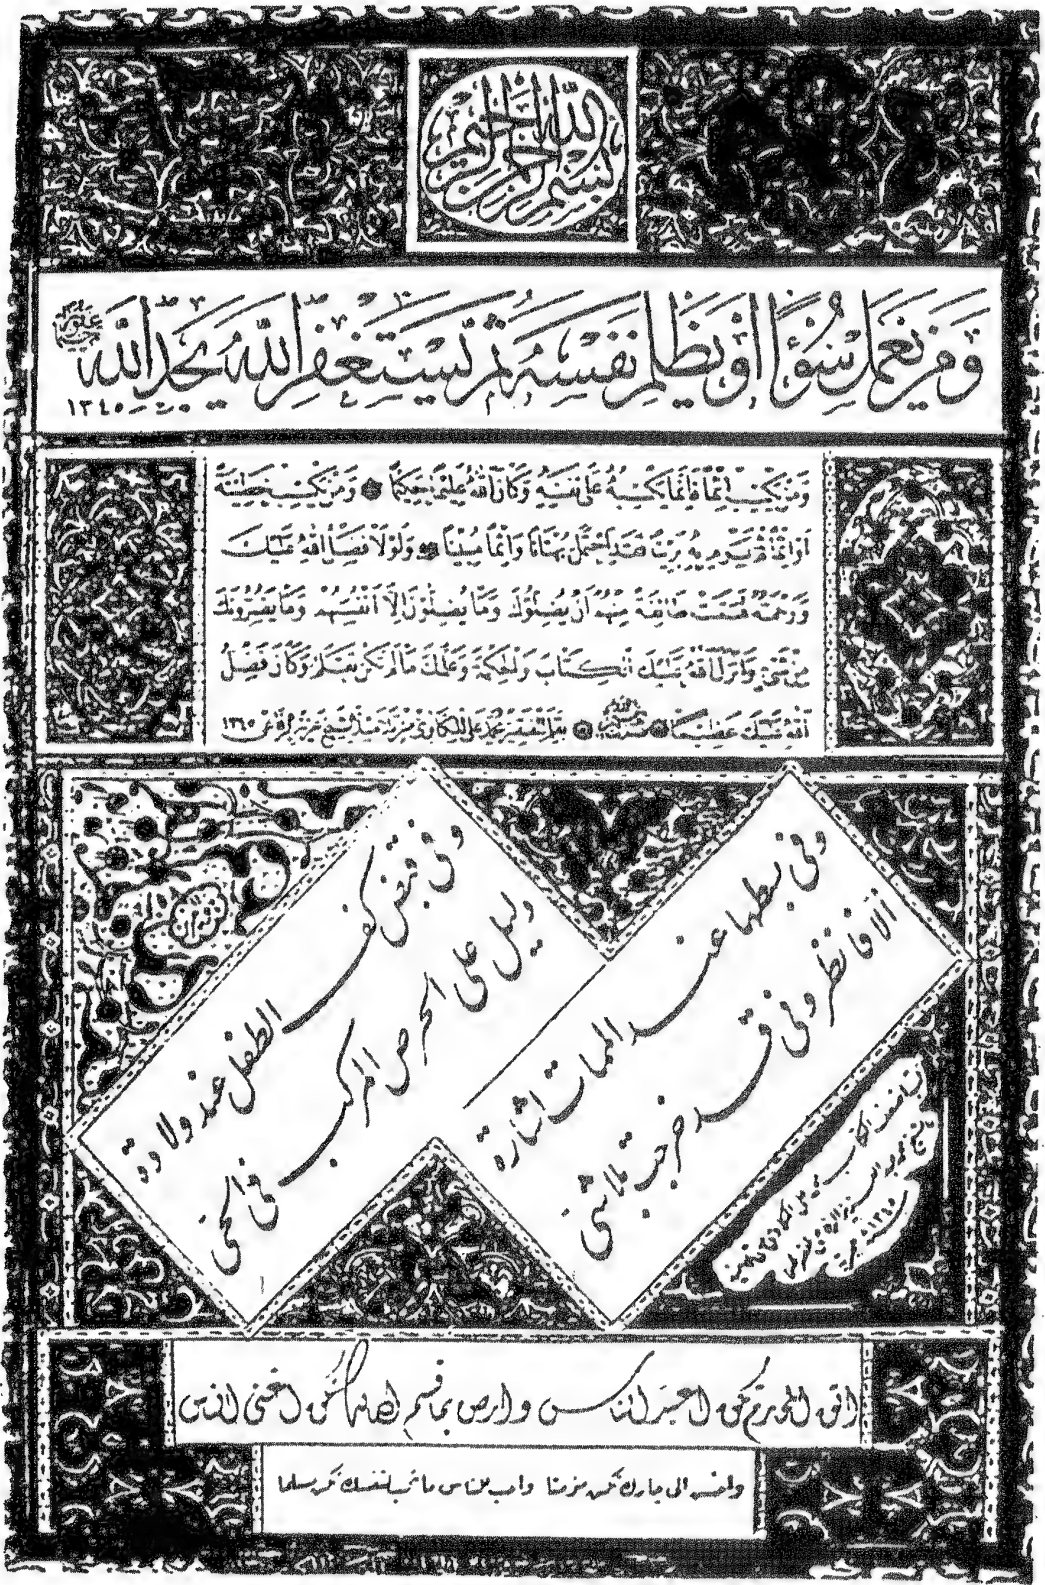 بسم الله الرحمن الرحيم
وَمَنْ يَعْمَلْ سُوءًا أَوْ يَظْلِمْ نَفْسَهُ ثُمَّ يَسْتَغْفِرِ اللَّهَ يَجِدِ اللَّهَ
سنة ١٣٤٥
وَمَنْ يَكْسِبْ اِثْمًا فَاِنَّمَا يَكْسِبُهُ عَلٰى نَفْسِهِ وَكَانَ اللهُ عَلِيْمًا حَكِيْمًا وَمَنْ يَكْسِبْ خَطِيْئَةً
اَوْ اِثْمًا ثُمَّ يَرْمِ بِهِ بَرِيْئًا فَقَدِ احْتَمَلَ بُهْتَانًا وَاِثْمًا مُبِيْنًا وَلَوْلَا فَضْلُ اللهِ عَلَيْكَ
وَرَحْمَتُهُ لَهَمَّتْ طَائِفَةٌ مِنْهُمْ اَنْ يُضِلُّوْكَ وَمَا يُضِلُّوْنَ اِلَّا اَنْفُسَهُمْ وَمَا يَضُرُّوْنَكَ
مِنْ شَيْءٍ وَاَنْزَلَ اللهُ عَلَيْكَ الْكِتَابَ وَالْحِكْمَةَ وَعَلَّمَكَ مَا لَمْ تَكُنْ تَعْلَمُ وَكَانَ فَضْلُ
اللهِ عَلَيْكَ عَظِيْمًا محمد علي المكاوي من تلاميذ الشيخ عزيز الرفاعي ١٣٤٥
وفي قبض كف الطفل عند ولادة
دليل على الحرص المركب في الحي
وفي بسطها عند الممات اشارة
ألا فانظروني قد خرجت بلا شئ
محمد علي المكاوي
عبد العزيز الرفاعي
١٣٤٥
اتق المحارم تكن اعبد الناس وارض بما قسم الله لك تكن اغنى الناس
واحسن الى جارك تكن مؤمنا واحب للناس ما تحب لنفسك تكن مسلما